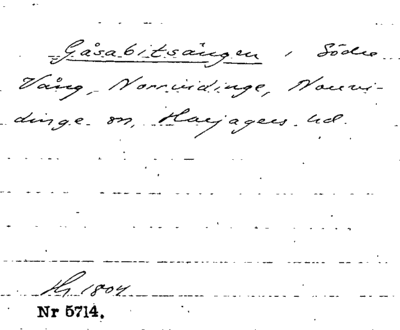 Gåsabitsången i Södre
Vång, Norrvidinge, Norrvi-
dinge sn, Harjagers hd.
Hs 1804
Nr 5714.